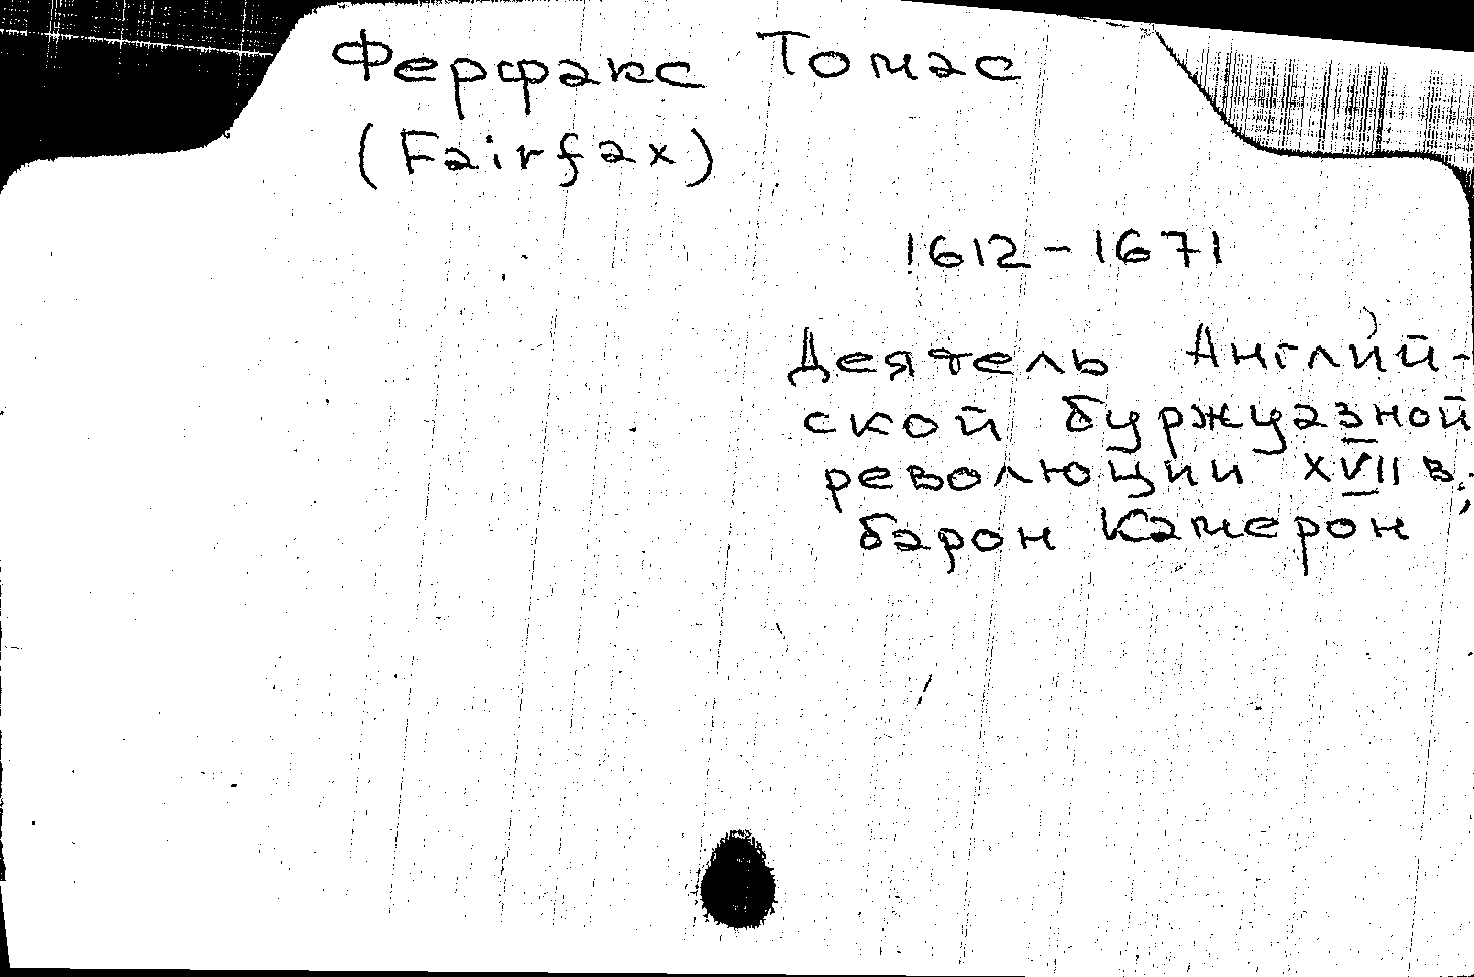 Ферфакс Томас
(Fairfax)
1612-1671
Деятель Англий-
ской буржуазной
революции XVII в.;
барон Камерон